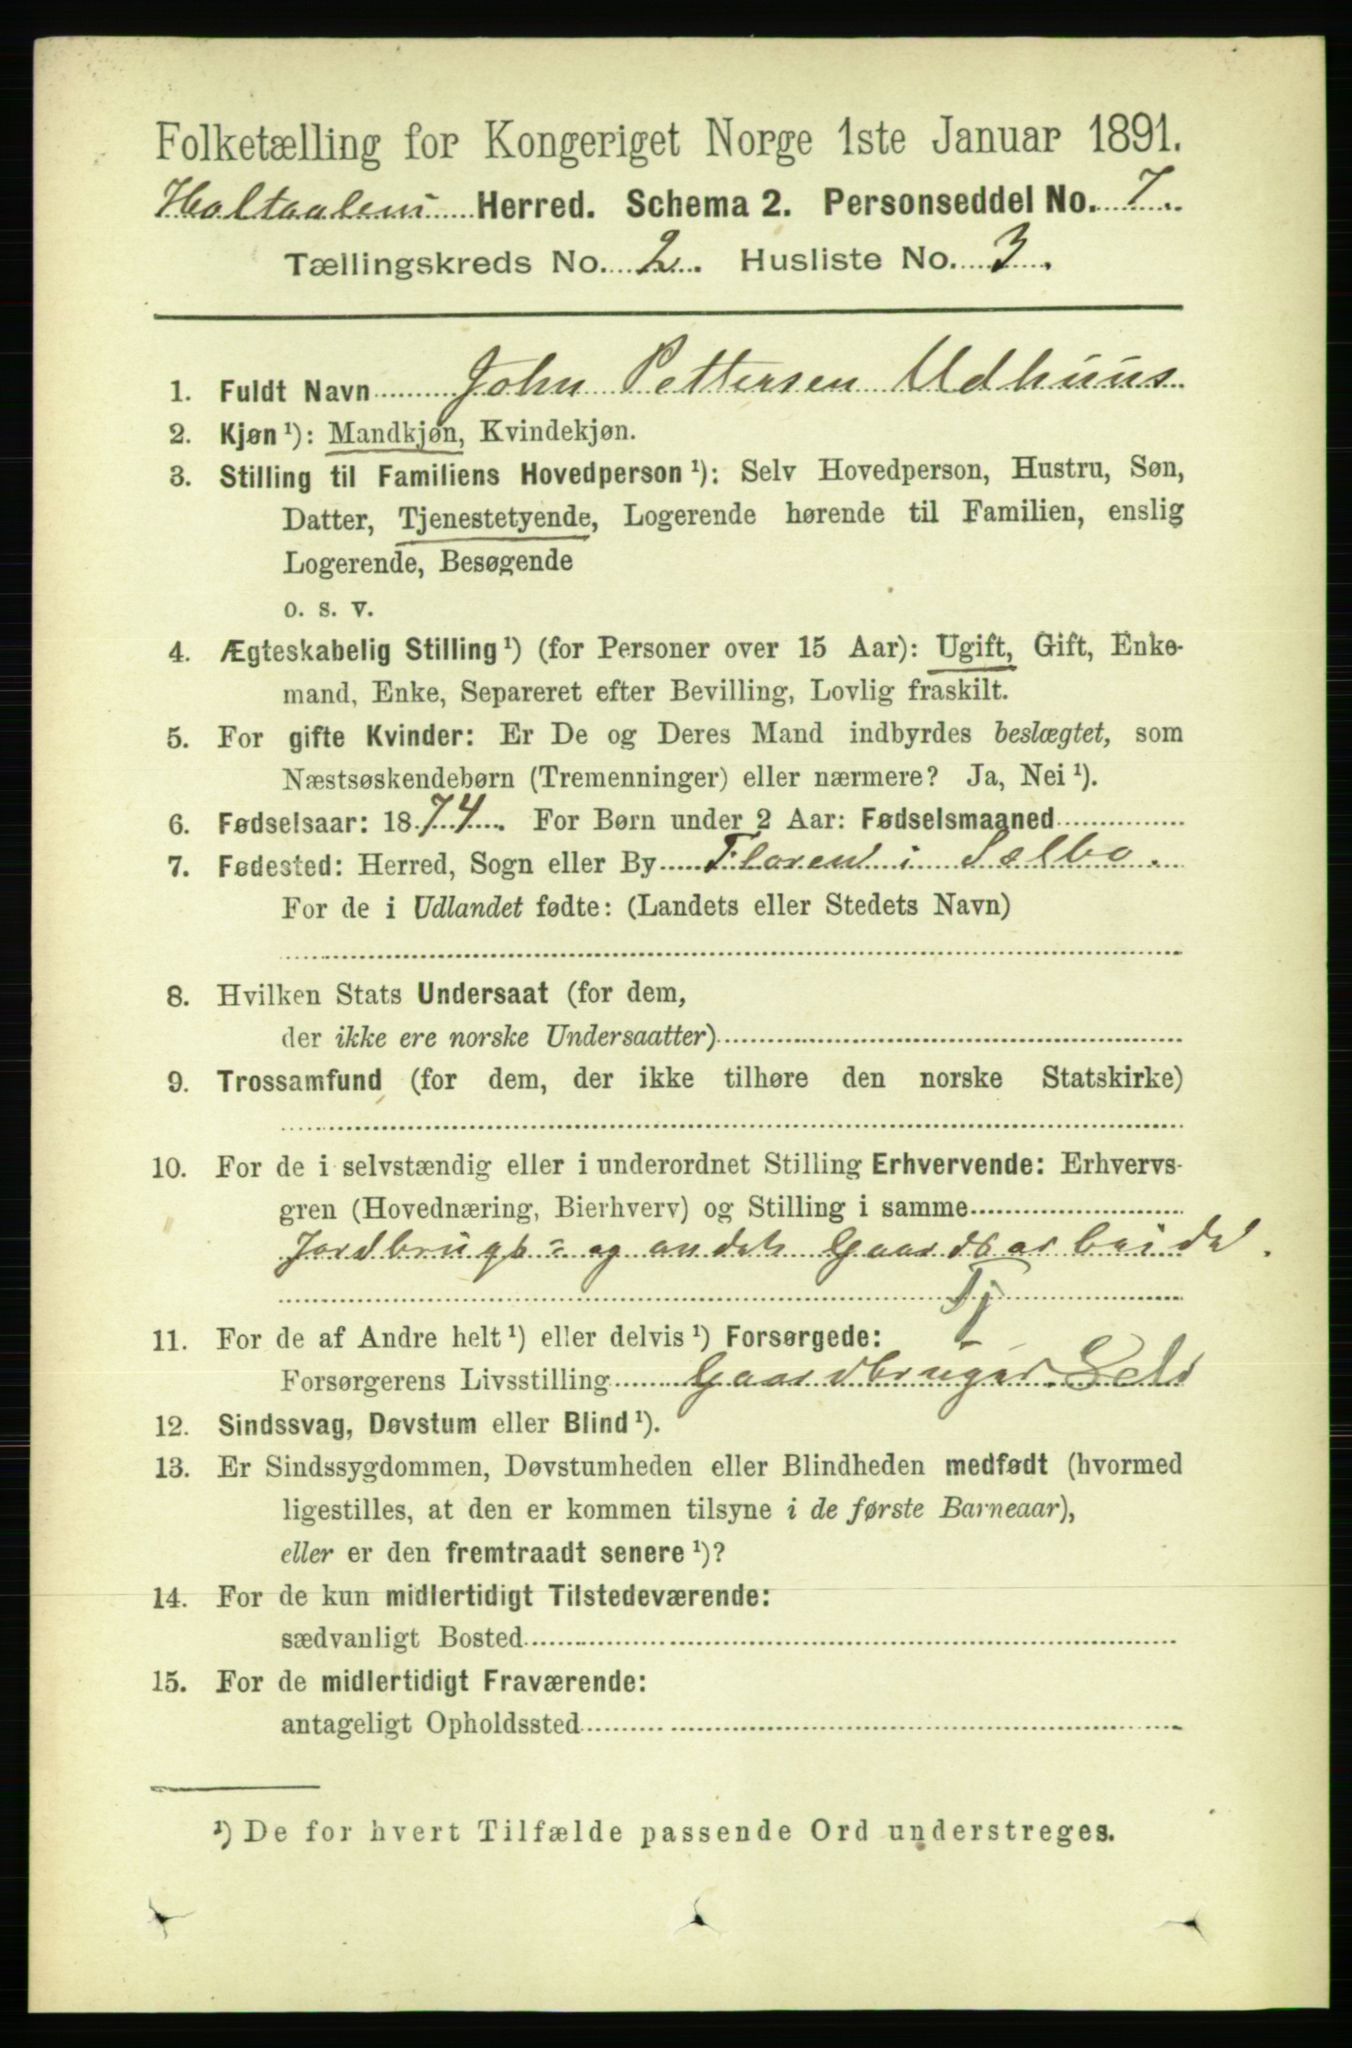 Folketælling for Kongeriget Norge 1ste Januar 1891.
Holtaalens Herred. Schema 2. Personseddel No. 7.
Tællingskreds No. 2. Husliste No. 3.
1. Fuldt Navn John Pettersen Udhuus
2. Kjøn ¹): Mandkjøn, Kvindekjøn.
3. Stilling til Familiens Hovedperson ¹): Selv Hovedperson, Hustru, Søn,
Datter, Tjenestetyende, Logerende hørende til Familien, enslig
Logerende, Besøgende
o. s. v.
4. Ægteskabelig Stilling ¹) (for Personer over 15 Aar): Ugift, Gift, Enke-
mand, Enke, Separeret efter Bevilling, Lovlig fraskilt.
5. For gifte Kvinder: Er De og Deres Mand indbyrdes beslægtet, som
Næstsøskendebørn (Tremenninger) eller nærmere? Ja, Nei ¹).
6. Fødselsaar: 1874. For Børn under 2 Aar: Fødselsmaaned
7. Fødested: Herred, Sogn eller By Floren i Selbo.
For de i Udlandet fødte: (Landets eller Stedets Navn)
8. Hvilken Stats Undersaat (for dem,
der ikke ere norske Undersaatter)
9. Trossamfund (for dem, der ikke tilhøre den norske Statskirke)
10. For de i selvstændig eller i underordnet Stilling Erhvervende: Erhvervs-
gren (Hovednæring, Bierhverv) og Stilling i samme
Jordbrugs- og andet Gaardsarbeide.
Tj
11. For de af Andre helt ¹) eller delvis ¹) Forsørgede:
Forsørgerens Livsstilling Gaardbruger. Selv
12. Sindssvag, Døvstum eller Blind ¹).
13. Er Sindssygdommen, Døvstumheden eller Blindheden medfødt (hvormed
ligestilles, at den er kommen tilsyne i de første Barneaar),
eller er den fremtraadt senere ¹)?
14. For de kun midlertidigt Tilstedeværende:
sædvanligt Bosted
15. For de midlertidigt Fraværende:
antageligt Opholdssted
¹) De for hvert Tilfælde passende Ord understreges.